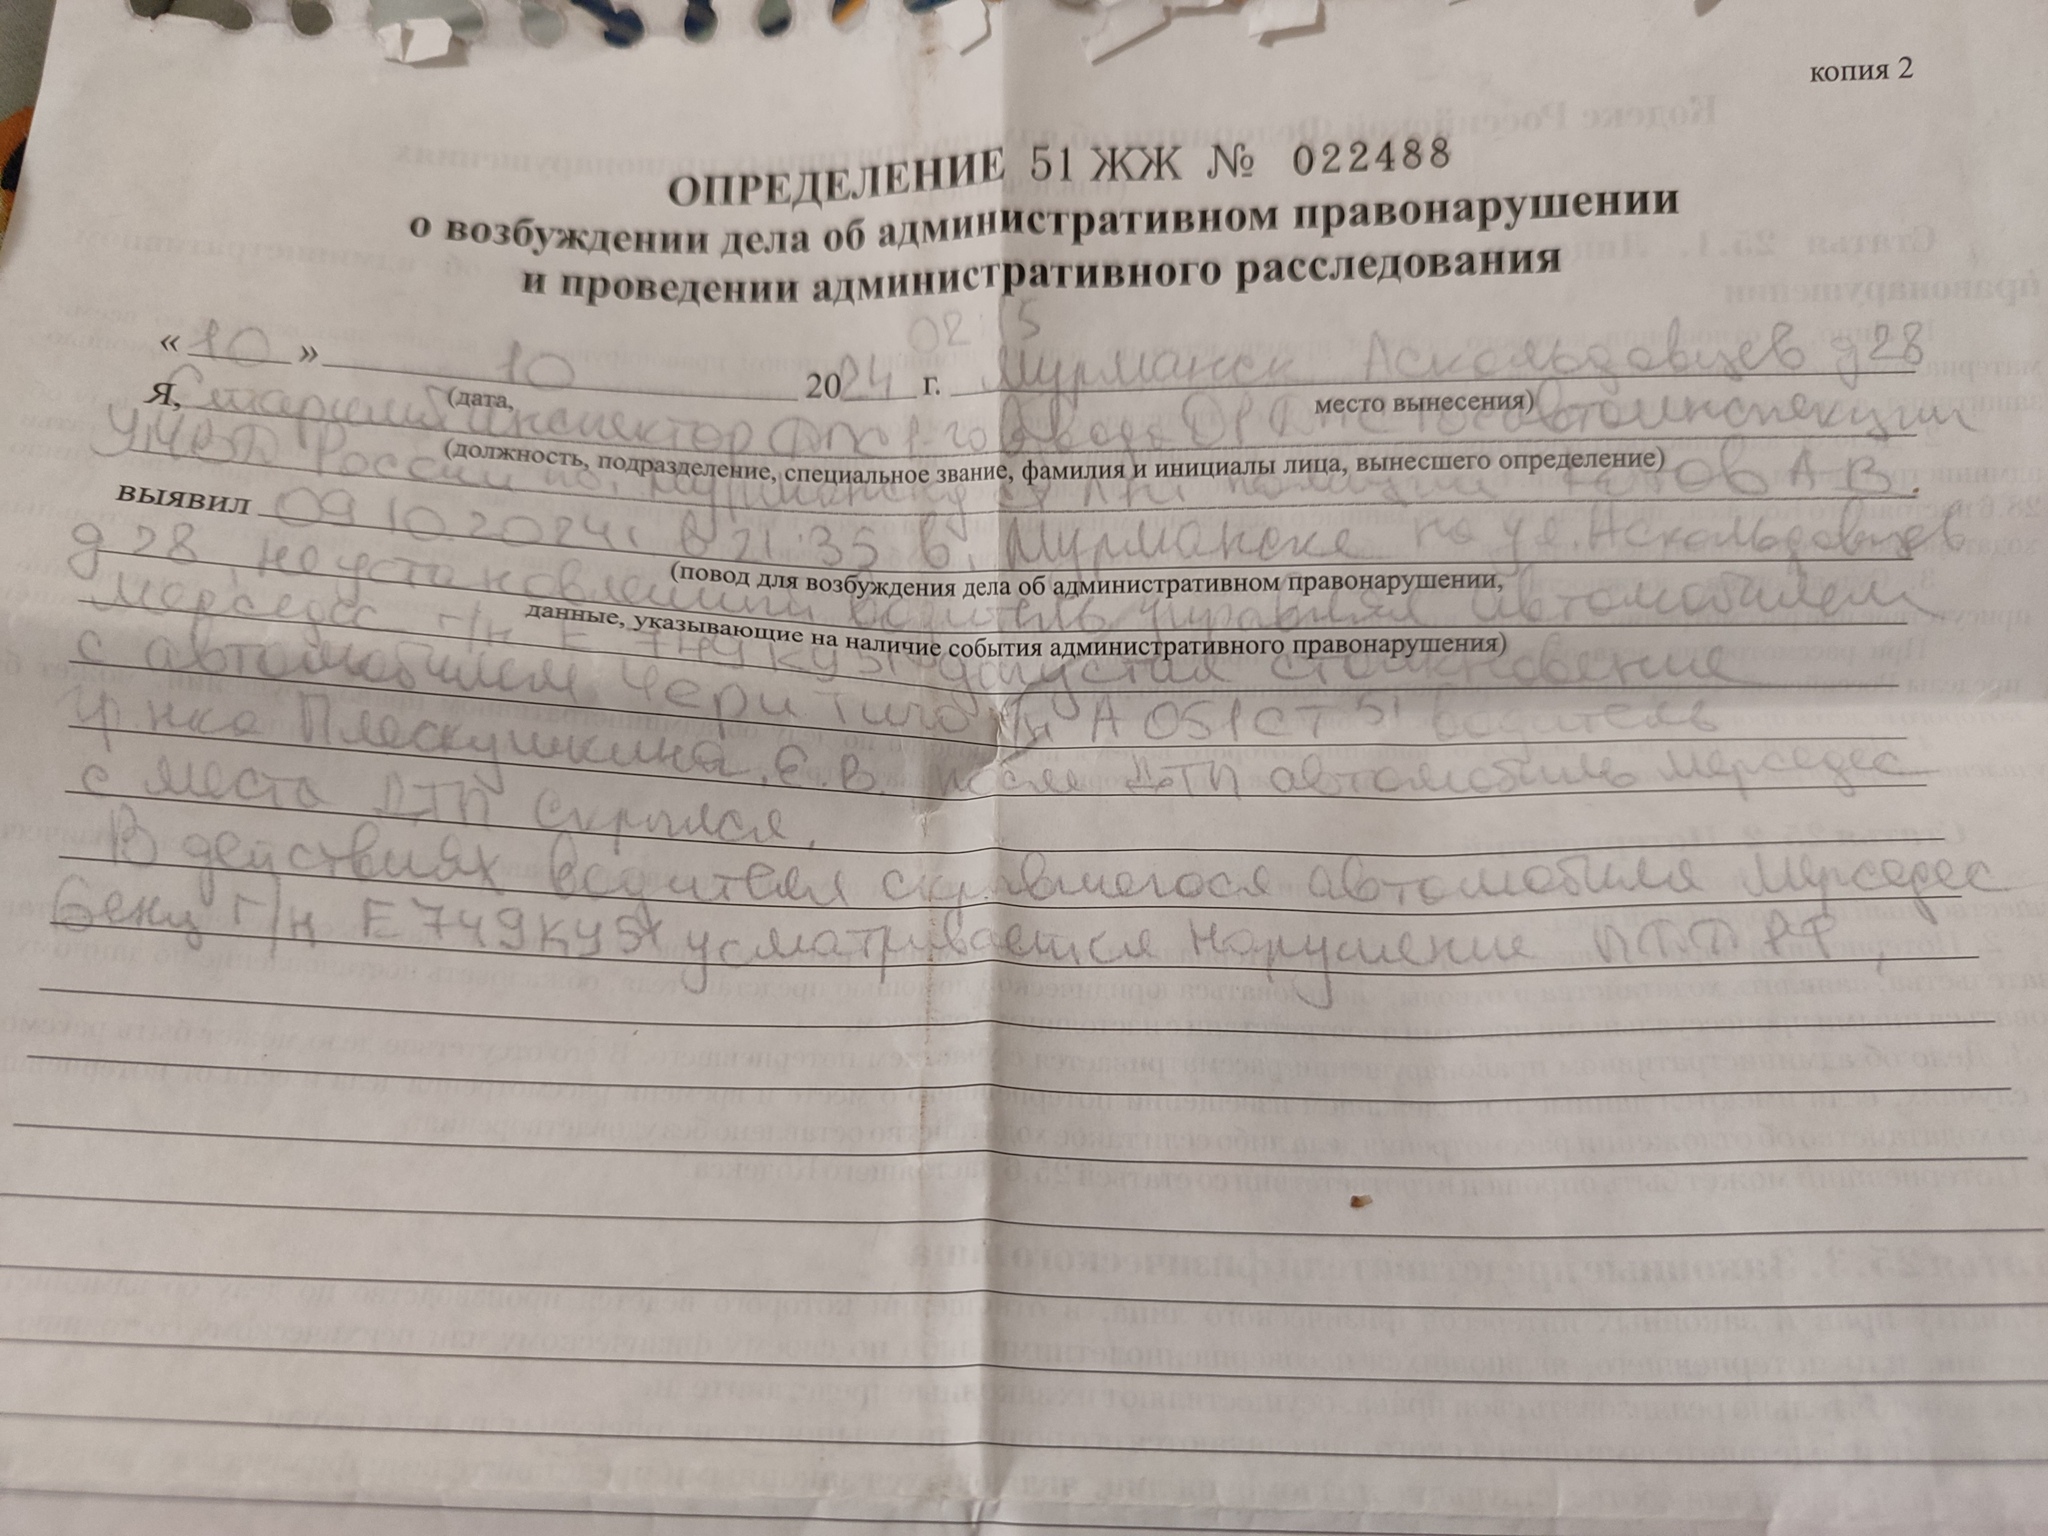 копия 2
ОПРЕДЕЛЕНИЕ 51 ЖЖ № 022488
о возбуждении дела об административном правонарушении
и проведении административного расследования
02 15
« 10 » 10 2024 г. Мурманск Аскольдовцев д 28
(дата, место вынесения)
Я, Старший инспектор ДПС 1-го взвода ОР ДПС Госавтоинспекции
(должность, подразделение, специальное звание, фамилия и инициалы лица, вынесшего определение)
УМВД России по г. Мурманску полиции А В
выявил 09 10.2024г в 21:35 в г. Мурманске на ул. Аскольдовцев
(повод для возбуждения дела об административном правонарушении,
д 28, неустановленный водитель управляя автомобилем
данные, указывающие на наличие события административного правонарушения)
мерседес г/н Е 749 КУ 51 допустил столкновение
с автомобилем Чери Тиго г/н А 051 СТ 51 водитель
гр.нка Плескушкина Е.В. после ДТП автомобиль мерседес
с места ДТП скрылся,
В действиях водителя скрывшегося автомобиля мерседес
бенц г/н Е 749 КУ 51 усматривается нарушение ПДД РФ,